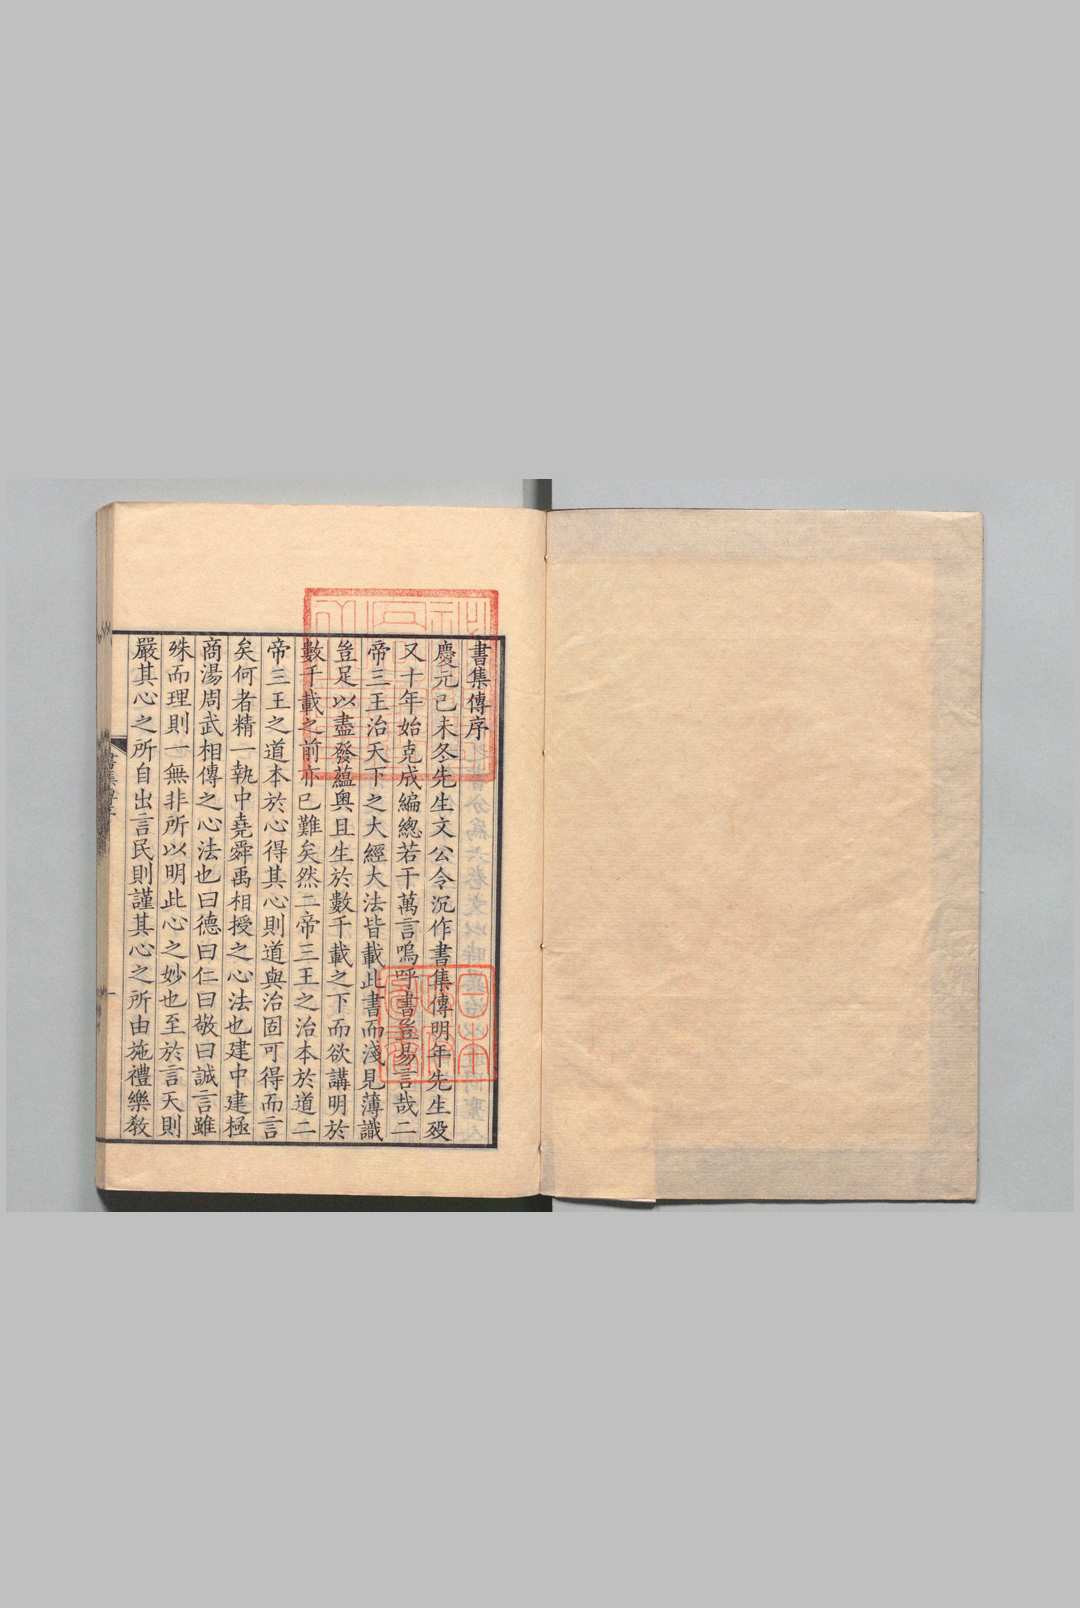 書集傳序
慶元己未冬先生文公令沉作書集傳明年先生歿
又十年始克成編總若干萬言嗚呼書豈易言哉二
帝三王治天下之大經大法皆載此書而淺見薄識
豈足以盡發蘊奧且生於數千載之下而欲講明於
數千載之前亦已難矣然二帝三王之治本於道二
帝三王之道本於心得其心則道與治固可得而言
矣何者精一執中堯舜禹相授之心法也建中建極
商湯周武相傳之心法也曰德曰仁曰敬曰誠言雖
殊而理則一無非所以明此心之妙也至於言天則
嚴其心之所自出言民則謹其心之所由施禮樂教